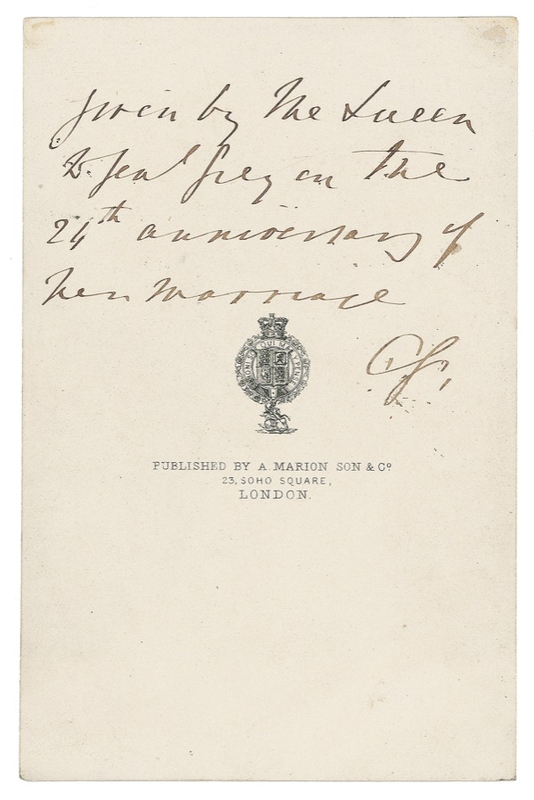 given by The Queen
to Genl Grey on The
24th anniversary of
her marriage
CG.
HONI SOIT QUI MAL Y PENSE
PUBLISHED BY A. MARION SON & Co
23, SOHO SQUARE,
LONDON.